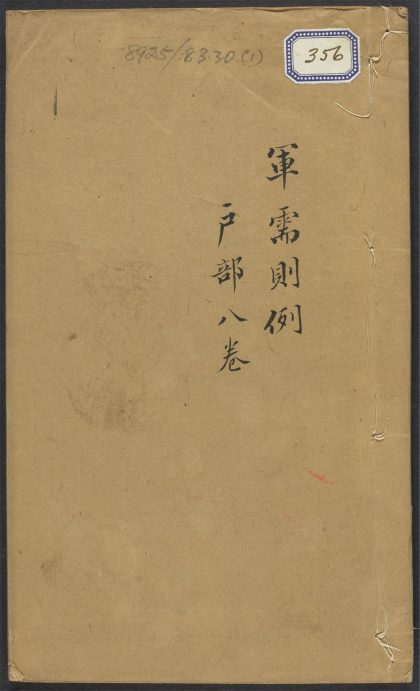 8925/8330(1)
356
軍需則例
戶部八卷